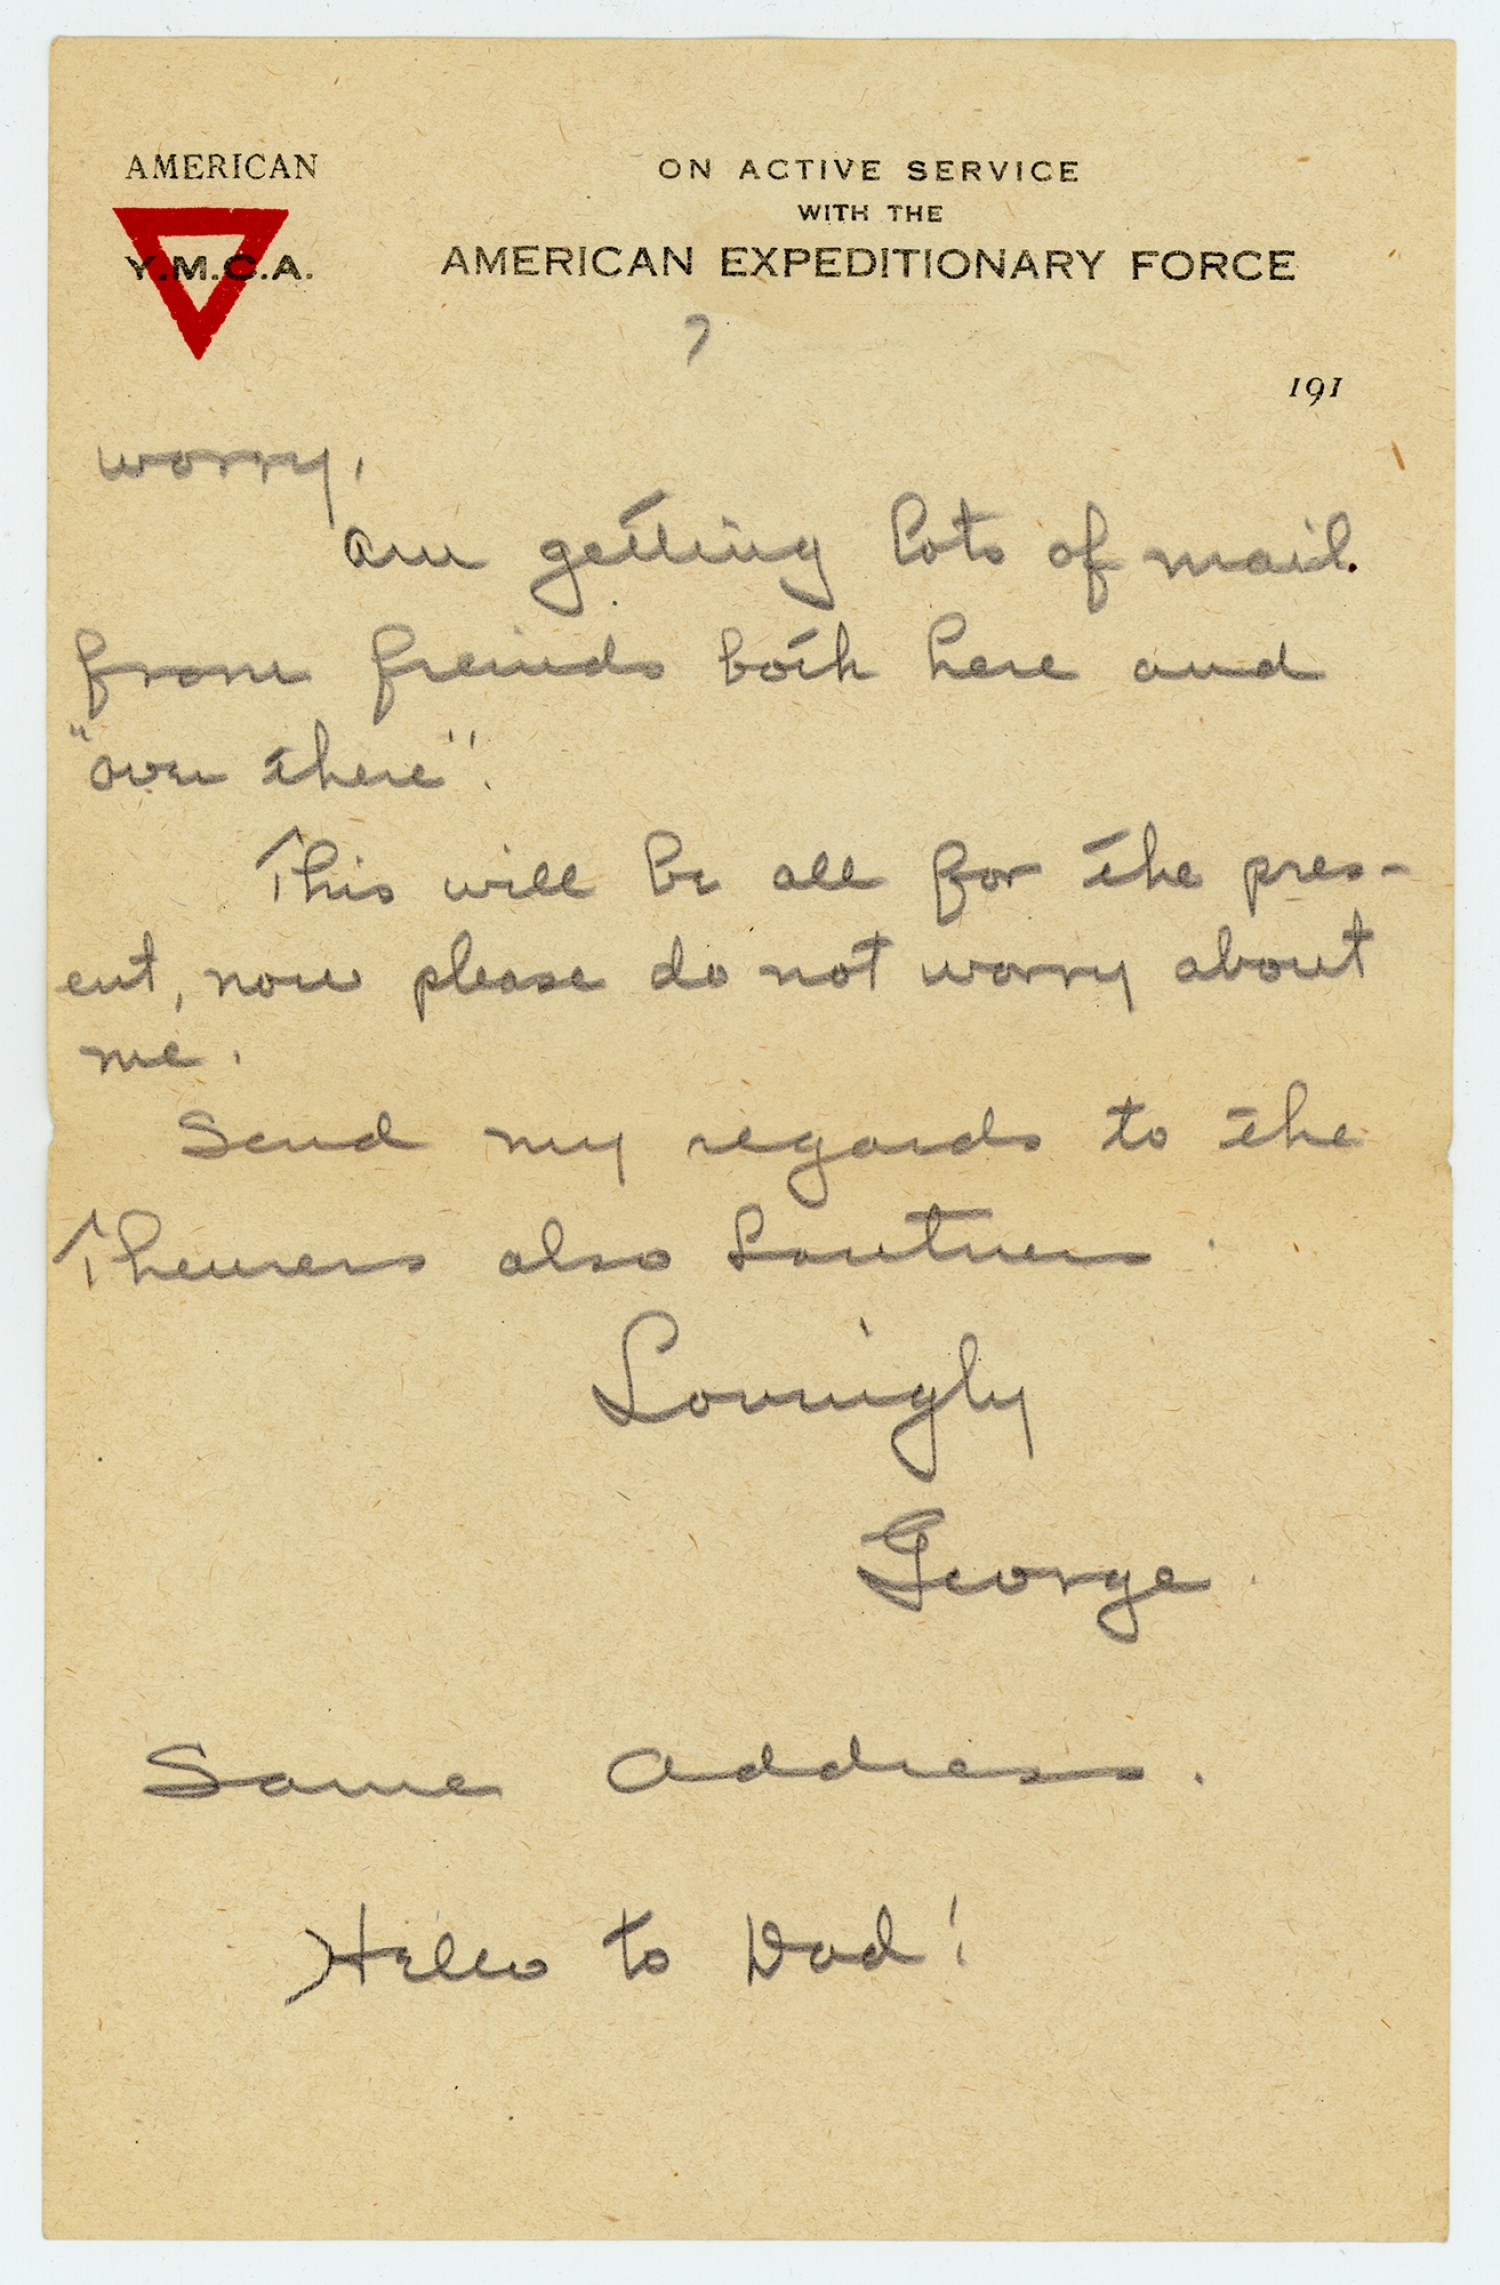 AMERICAN
Y.M.C.A.
ON ACTIVE SERVICE
WITH THE
AMERICAN EXPEDITIONARY FORCE
7
191
worry.
Am getting lots of mail.
from freinds both here and
"over there".
This will be all for the pres-
ent, now please do not worry about
me.
Send my regards to the
Theurers also Lautners.
Lovingly
George.
Same Address.
Hello to Dad!